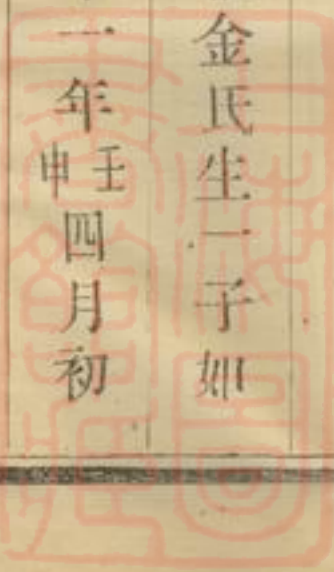 金氏生一子如
一年壬申四月初